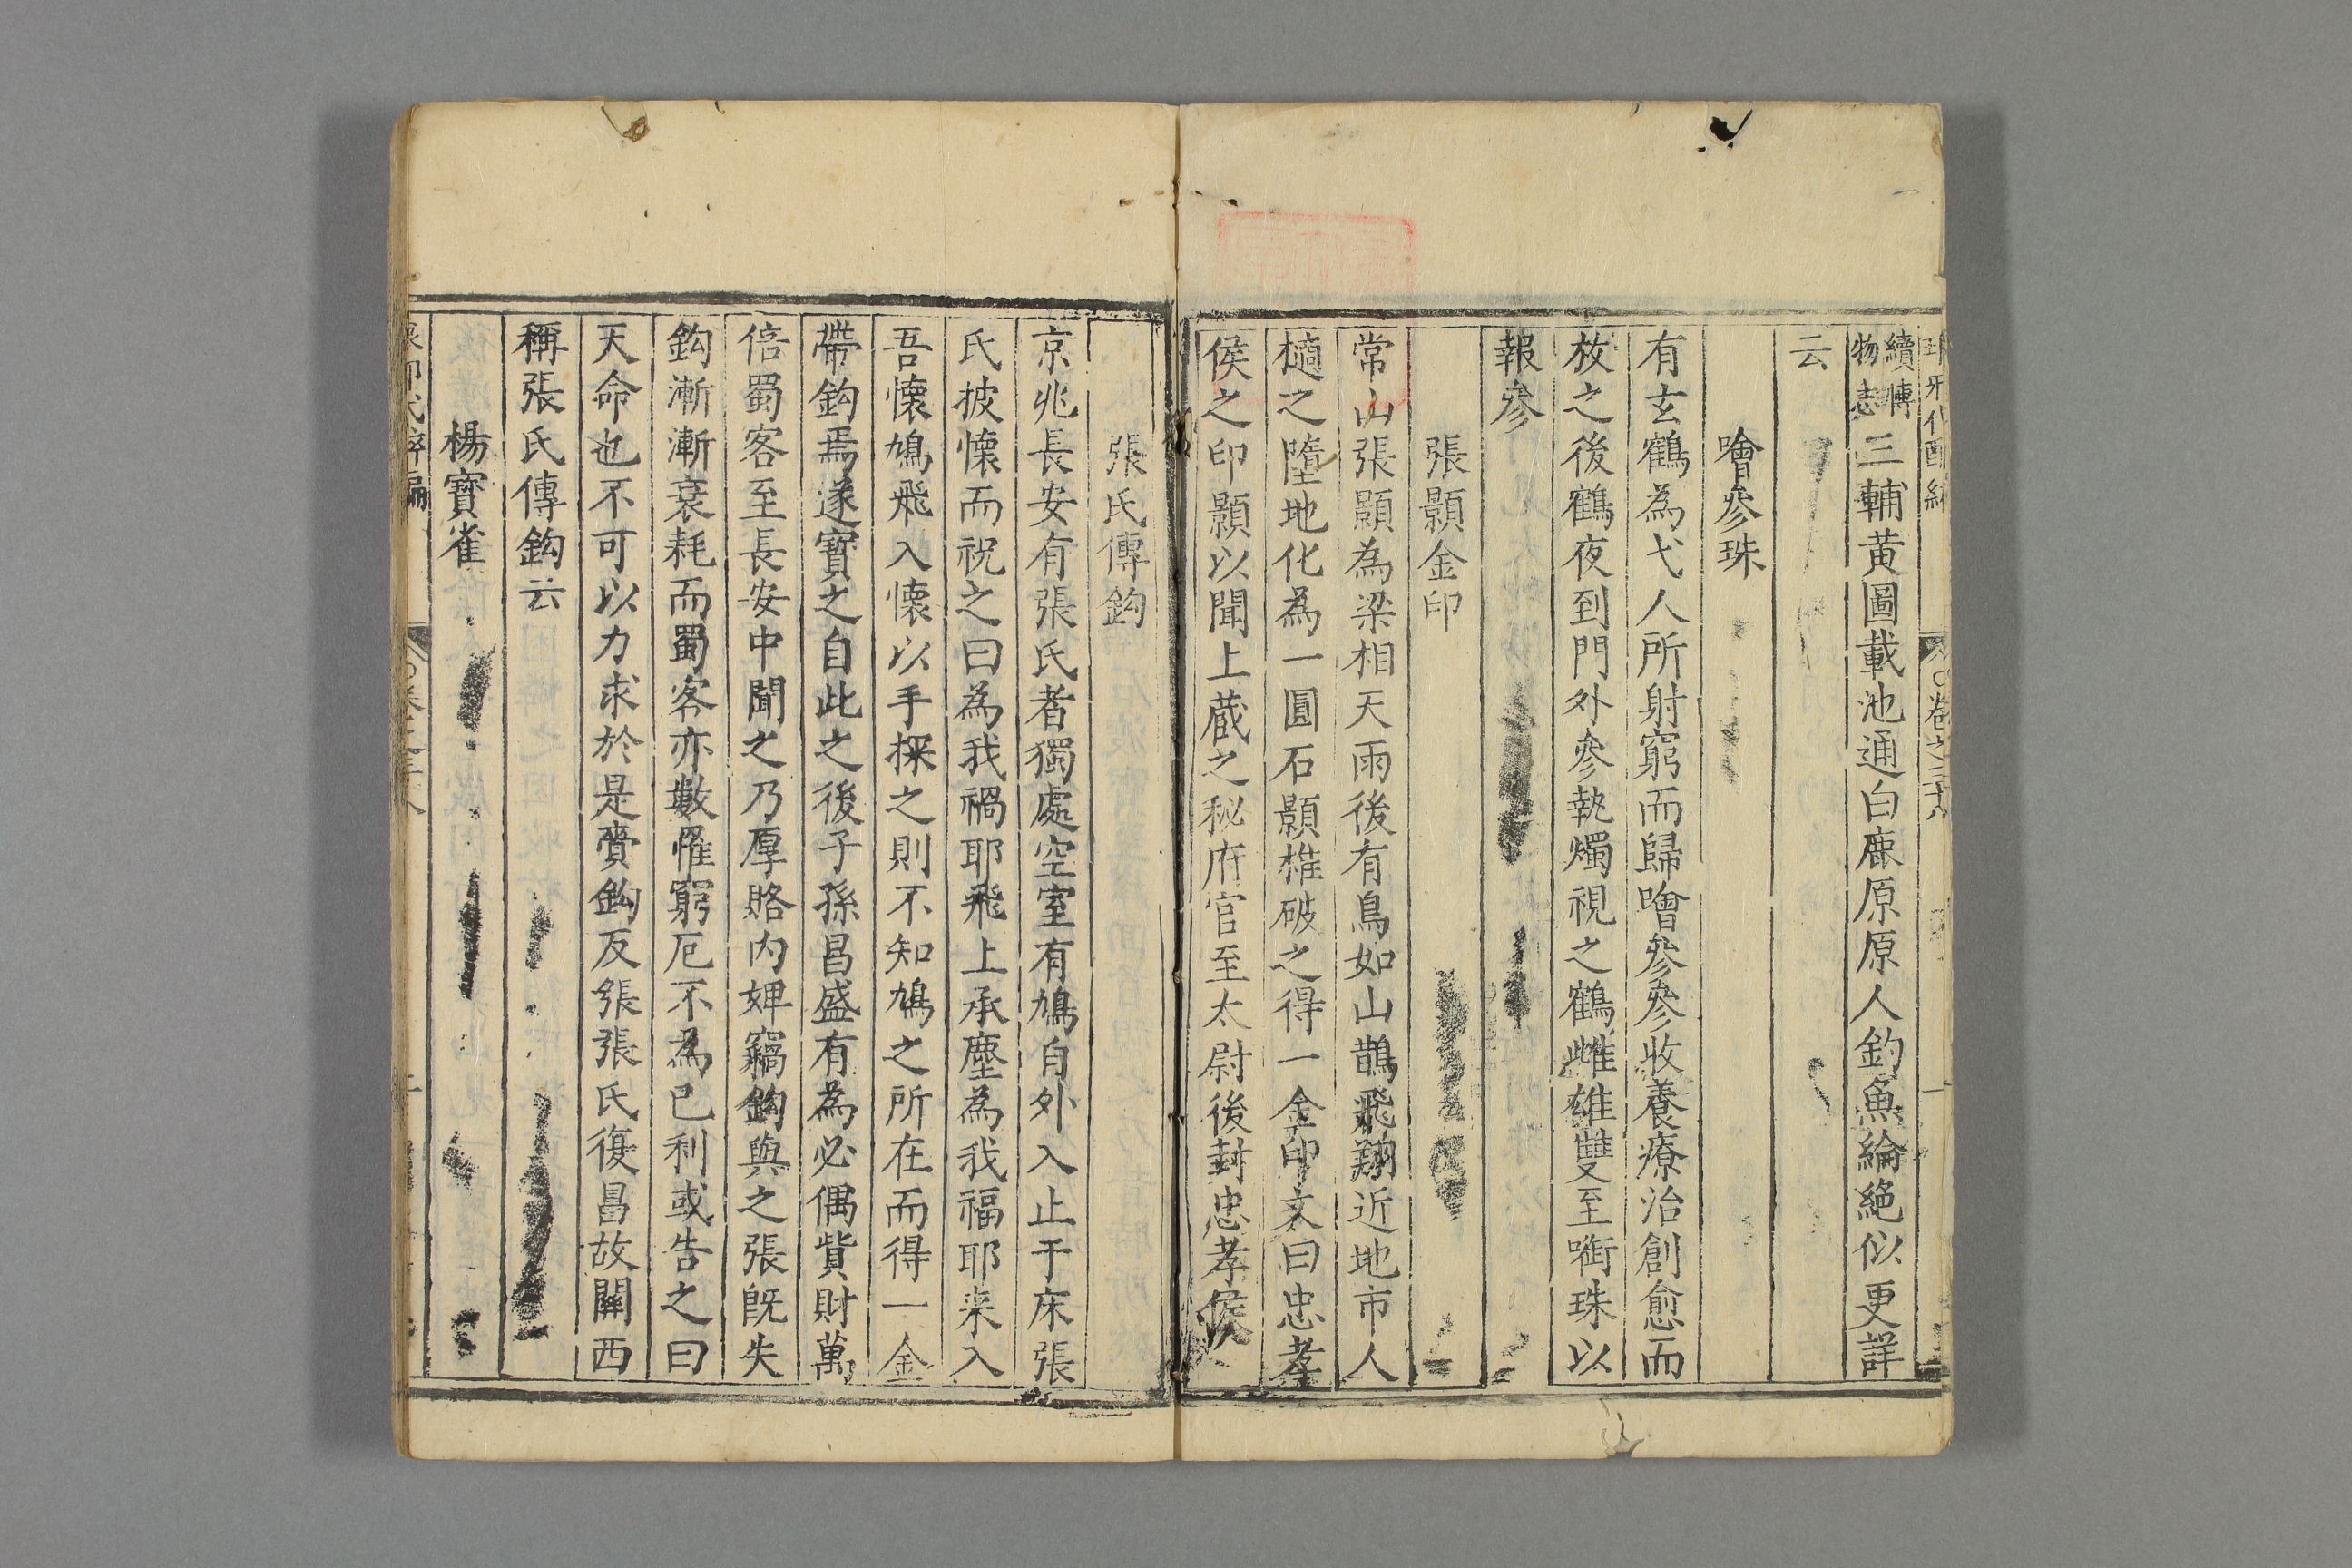 續博
物志
三輔黄圖載池通白鹿原原人釣魚綸絶似更詳
云
噲參珠
有玄鶴為弋人所射窮而歸噲參參收養療治創愈而
放之後鶴夜到門外參執燭視之鶴雌雄雙至銜珠以
報參
張顥金印
常山張顥為梁相天雨後有鳥如山鵲飛翔近地市人
擿之墮地化為一圓石顥椎破之得一金印文曰忠孝
侯之印顥以聞上蔵之秘府官至太尉後封忠孝侯
張氏傳鈎
京兆長安有張氏者獨處空室有鳩自外入止于床張
氏披懷而祝之曰為我禍耶飛上承塵為我福耶来入
吾懷鳩飛入懷以手探之則不知鳩之所在而得一金
帶鈎焉遂寶之自此之後子孫昌盛有為必偶貲財萬
倍蜀客至長安中聞之乃厚賂内婢竊鈎與之張既失
鈎漸漸衰耗而蜀客亦數罹窮厄不為已利或告之曰
天命也不可以力求於是賫鈎反張張氏復昌故關西
稱張氏傳鈎云
楊寶雀